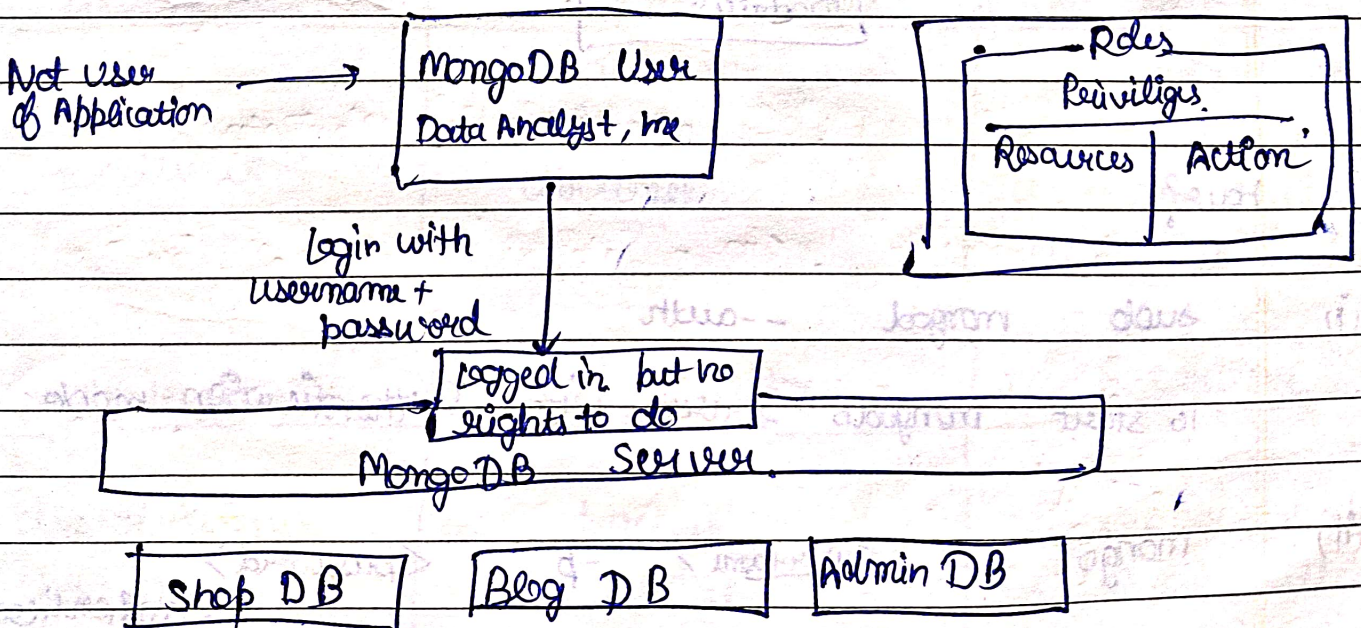 Not User
of Application
MongoDB User
Data Analyst, me
Roles
Priviliges.
Resources Action
Login with
username +
password
Logged in but no
rights to do
MongoDB Server.
Shop DB
Blog DB
Admin DB
sudo mongod --auth
mongo